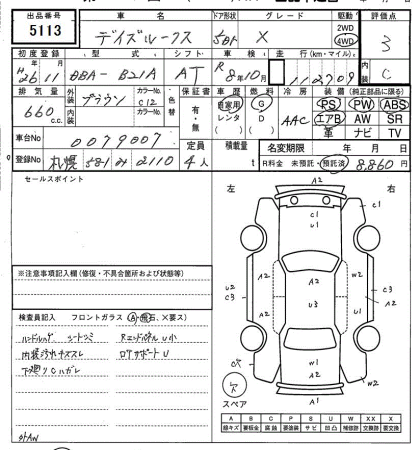 出品番号 車名 ドア形状 グレード 駆動 評価点
5113 デイズルークス 5D X 2WD 4WD 3
初度登録 型式 シフト 車検 走行(km・マイル) 内装
H26.11 DBA-B21A AT R8年10月 112709 C
排気量 外装 ブラウン カラーNo. C12 色替 保証書 車歴 燃料 冷房 装備(純正部品に限る)
660 c.c. 内装 カラーNo. 有・無 自家用 レンタ ( ) G D ( ) AAC PS PW ABS
エアB AW SR
革 ナビ TV
車台No 0079007 定員 積載量 名変期限 年 月 日
登録No 札幌 581 み 2110 4人 t R料金 未預託・預託済 8,860円
セールスポイント
左 右
A2
C1 C1
U1
A2 A2 A2 W2
U2 C3 U3 C3
A2 A2 A2
W1
W2
A2
スペア
※注意事項記入欄(修復・不具合箇所および状態等)
検査員記入 フロントガラス(A・飛石、×要ス)
ハンドルスレ シートシミ Rエンドパネルu小
内装汚れキズスレ ロアサポートU
下廻りCハガレ
外AW
A B C P S U W XX X
線キズ 要板金 腐蝕 要塗装 サビ 凹凸 補修跡 交換跡 要交換